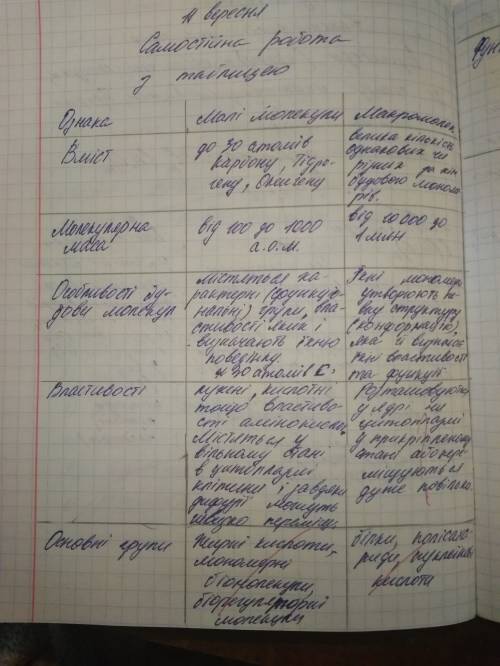 11 вересня
Самостійна робота
з таблицею
Ознака
Малі молекули
Макромолек.
Вміст
до 30 атомів
карбону, Гідро-
гену, Оксигену
велика кількість
однакових чи
різних за
будовою мономе-
рів.
Молекулярна
маса
від 100 до 1000
а.о.м.
від 10 000 до
1 млн
Особливості бу-
дови молекул
містяться ха-
рактерні (функціо-
нальні) групи, вла-
стивості яких і
визначають їхню
поведінку
30 атомів С
їхні мономери
утворюють пе-
вну структуру
(конформацію),
яка й визначає
їхні властивості
та функції
Властивості
лужні, кислотні
тощо властиво-
сті амінокислот.
Містяться у
вільному стані
в цитоплазмі
клітини і завдяки
дифузії можуть
швидко переміщ.
Розташовуються
у ядрі чи
цитоплазмі
у прикріпленому
стані або пере-
міщуються
дуже повільно.
Основні групи
Жирні кислоти,
мономерні
біомолекули,
біорегуляторні
молекули
білки, полісаха-
риди, нуклеїнові
кислоти